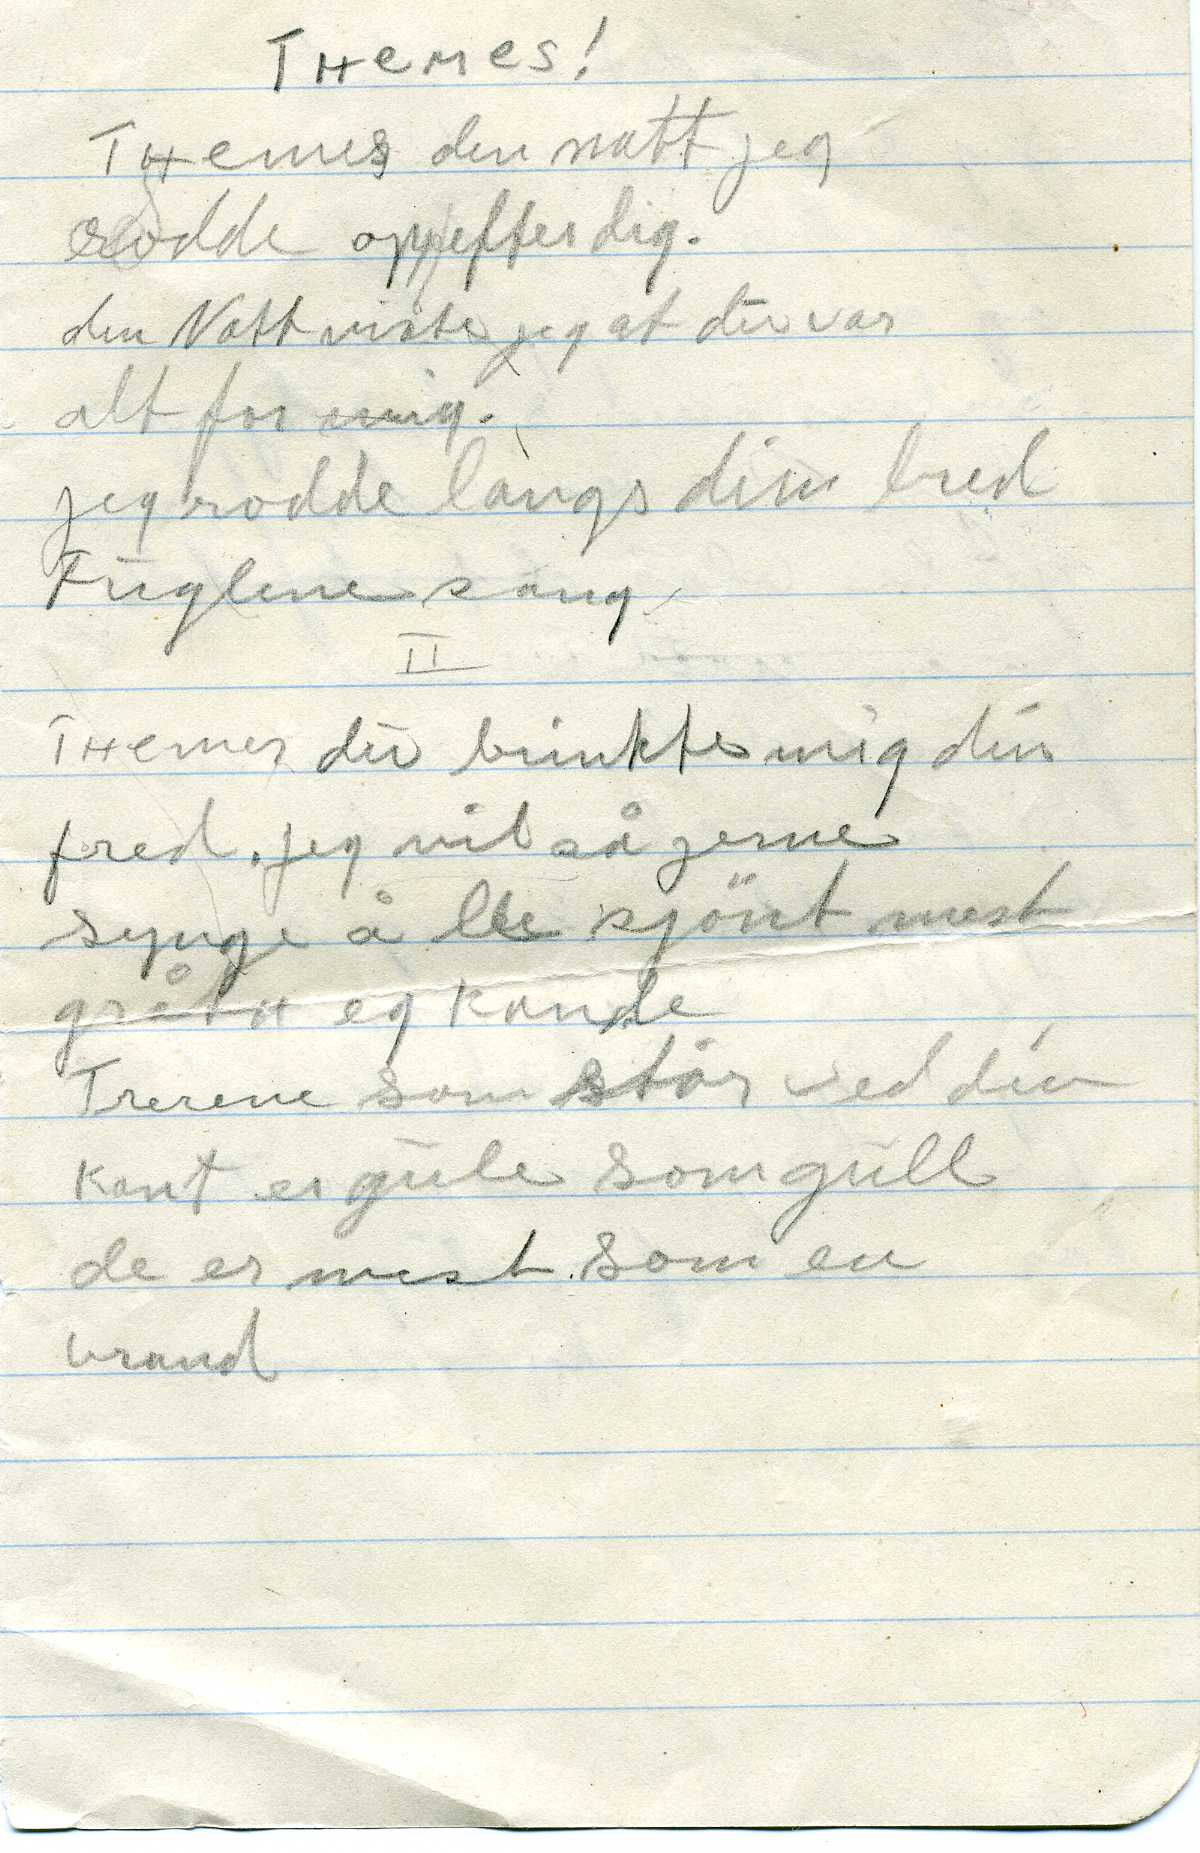 Themes!
Themes den natt jeg
rodde opp efter dig.
den Natt viste jeg at du var
alt for mig.
jeg rodde langs din bred
Fuglene sang
II
Themes du bringte mig din
fred. jeg vil så jerne
synge å lle skjönt mest
gråt H eg kande
Trerene som står ved din
kant er gule som gull
de er mest som en
brand